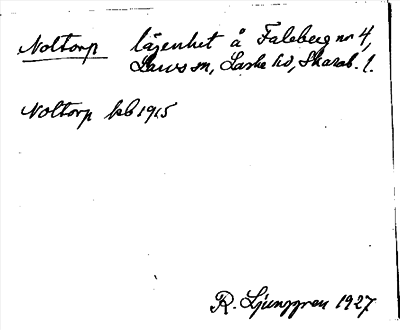 Noltorp lägenhet å Faleberg nr 4,
Lavs sn, Laske hd, Skarab. l.
Noltorp kb 1915
R. Ljunggren 1927